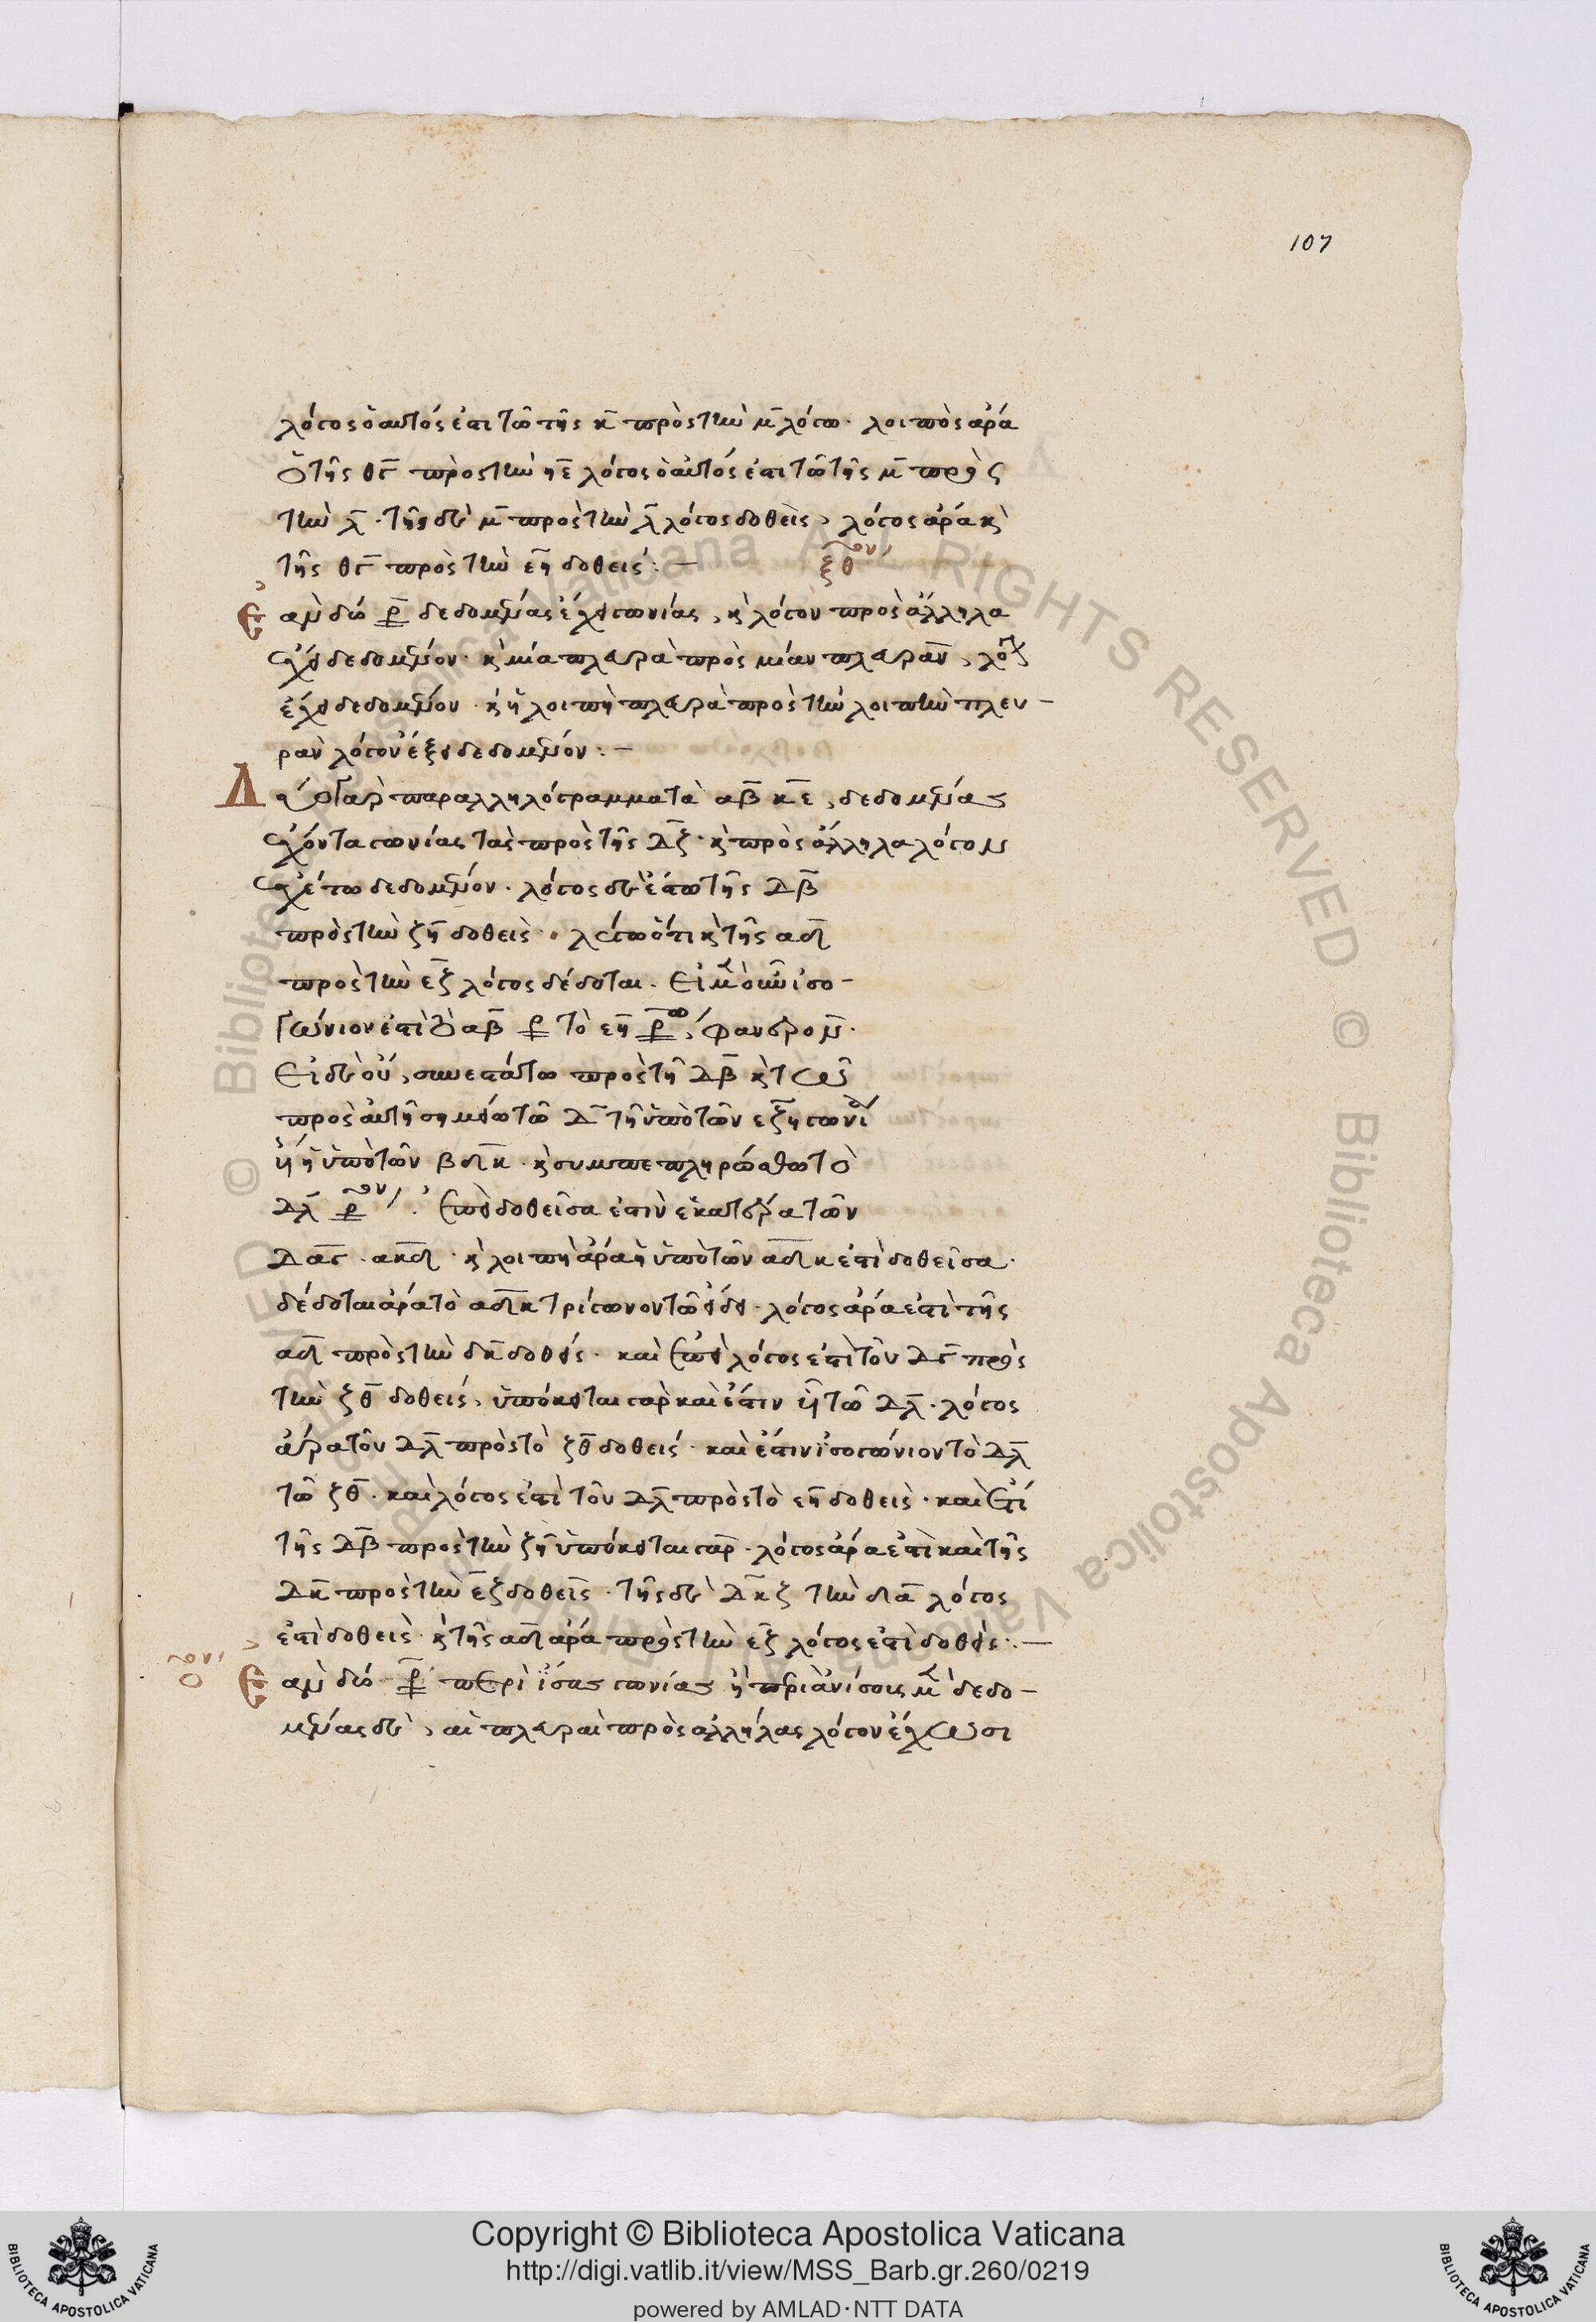 107
λόγος ὁ αὐτός ἐστι τῷ τῆς κ̅ πρὸς τὴν μ̅ λόγω· λοιπὸς ἄρα
ὁ τῆς θγ̅ πρὸς τὴν ηε̅ λόγος ὁ αὐτός ἐστι τῷ τῆς μ̅ πρὸς
τὴν λ̅· τῆς δὲ μ̅ πρὸς τὴν λ̅ λόγος δοθεὶς, λόγος ἄρα κ̀
τῆς θγ̅ πρὸς τὴν εη̅ δοθείς:—
ξθον
Ἐὰν δύο ρ̅ δεδομμένας ἔχει γωνίας, κ̀ λόγον πρὸς ἄλληλα
ἔχει δεδομμένον· κ̀ μία πλευρὰ πρὸς μίαν πλευρὰν, λόγ
ἔχει δεδομμένον· κ̀ ἡ λοιπὴ πλευρὰ πρὸς τὴν λοιπὴν πλευ-
ρὰν λόγον ἕξει δεδομμένον:—
Δύο γὰρ παραλληλόγραμματα αβ̅ κε̅, δεδομμένας
ἔχοντα γωνίας τὰς πρὸς τῆς δζ̅· κ̀ πρὸς ἄλληλα λόγον
ἐχέτω δεδομμένον· λόγος δὲ ἔστω τῆς δβ̅
πρὸς τὴν ζη̅ δοθεὶς· λέγω ὅτι κ̀ τῆς αδ̅
πρὸς τὴν εζ̅ λόγος δέδοται. Εἰ μὲν οὖν ἰσο-
γώνιον ἐστὶ τὸ αβ̅ ρ̅ τὸ εη̅ ρ̅ω, φανερὸν.
Εἰ δὲ οὔ, συνεστάτω πρὸς τῆ δβ̅ κ̀ τῷ
πρὸς αὐτῆ σημείω τῷ δ̅ τῆ ὑπὸ τῶν εζ̅η γωνία
ἴση ἡ ὑπὸ τῶν βδκ̅· κ̀ συμπεπληρώσθω τὸ
δλ̅ ρ̅ον. Ἐπεὶ δοθεῖσα ἐστὶν ἑκατέρα τῶν
δαγ̅· ακδ̅· κ̀ λοιπὴ ἄρα ἡ ὑπὸ τῶν αδ̅κ ἐστὶ δοθεῖσα·
δέδοται ἄρα τὸ αδ̅κ τρίγωνον τῷ εἴδει· λόγος ἄρα ἐστὶ τῆς
αδ̅ πρὸς τὴν δκ̅ δοθείς· καὶ ἐπεὶ λόγος ἐστὶ τοῦ δγ̅ πρὸς
τὴν ζθ̅ δοθείς, ὑπόκειται γὰρ καὶ ἔστιν ἴση τῷ δλ̅· λόγος
ἄρα τοῦ δλ̅ πρὸς τὸ ζθ̅ δοθείς· καὶ ἔστιν ἰσογώνιον τὸ δλ̅
τῷ ζθ̅· καὶ λόγος ἐστὶ τοῦ δλ̅ πρὸς τὸ εη̅ δοθεὶς· καὶ ἔτι
τῆς δβ̅ πρὸς τὴν ζη̅ ὑπόκειται γὰρ· λόγος ἄρα ἐστὶ καὶ τῆς
δκ̅ πρὸς τὴν εζ̅ δοθεὶς· τῆς δὲ δκ̅ζ τὴν δα̅ λόγος
ἐστὶ δοθεὶς· κ̀ τῆς αδ̅ ἄρα πρὸς τὴν εζ̅ λόγος ἐστὶ δοθείς:—
οον
Ἐὰν δύο ρ̅ περὶ ἴσας γωνίας ἢ περὶ ἀνίσους μὲν δεδο-
μμένας δὲ, αἱ πλευραὶ πρὸς ἀλλήλας λόγον ἔχωσι
Copyright © Biblioteca Apostolica Vaticana
http://digi.vatlib.it/view/MSS_Barb.gr.260/0219
powered by AMLAD·NTT DATA